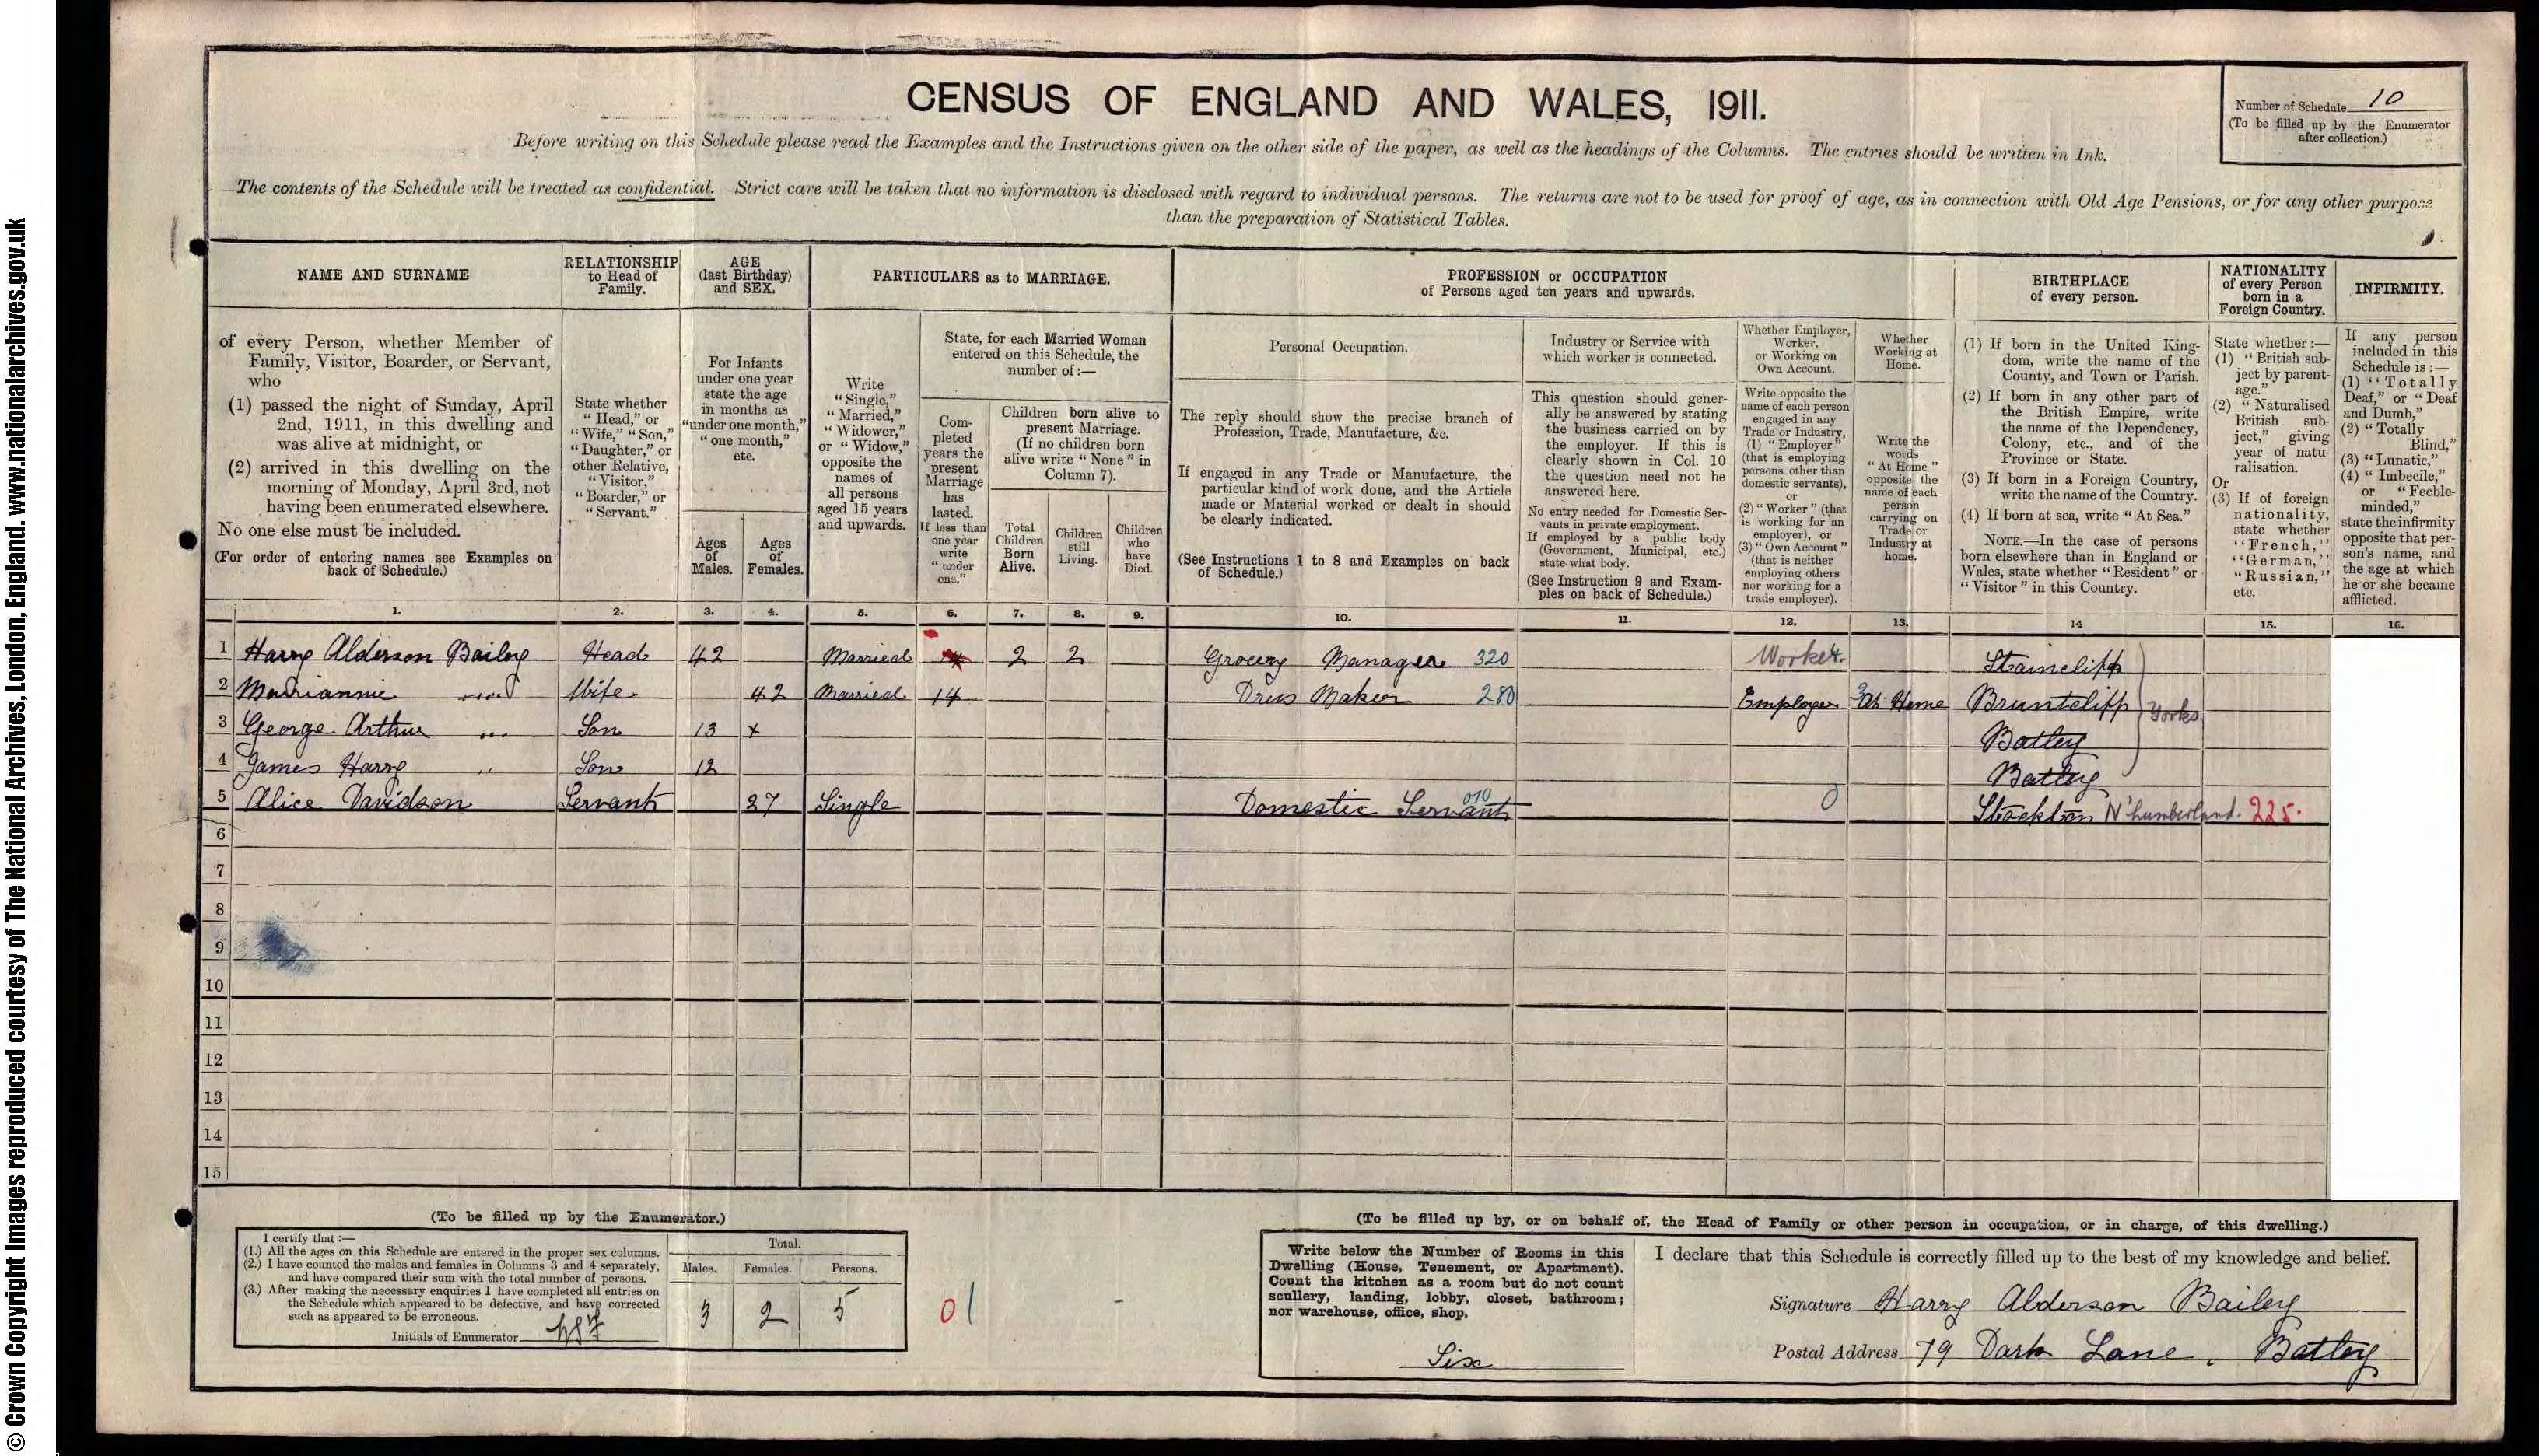 © Crown Copyright Images reproduced courtesy of The National Archives, London, England. www.nationalarchives.gov.uk
CENSUS OF ENGLAND AND WALES, 1911.
Number of Schedule 10
(To be filled up by the Enumerator
after collection.)
Before writing on this Schedule please read the Examples and the Instructions given on the other side of the paper, as well as the headings of the Columns. The entries should be written in Ink.
The contents of the Schedule will be treated as confidential. Strict care will be taken that no information is disclosed with regard to individual persons. The returns are not to be used for proof of age, as in connection with Old Age Pensions, or for any other purpose
than the preparation of Statistical Tables.
NAME AND SURNAME
of every Person, whether Member of
Family, Visitor, Boarder, or Servant,
who
(1) passed the night of Sunday, April
2nd, 1911, in this dwelling and
was alive at midnight, or
(2) arrived in this dwelling on the
morning of Monday, April 3rd, not
having been enumerated elsewhere.
No one else must be included.
(For order of entering names see Examples on
back of Schedule.)
RELATIONSHIP
to Head of
Family.
State whether
"Head," or
"Wife," "Son,"
"Daughter," or
other Relative,
"Visitor,"
"Boarder," or
"Servant."
AGE
(last Birthday)
and SEX.
For Infants
under one year
state the age
in months as
"under one month,"
"one month,"
etc.
Ages
of
Males.
Ages
of
Females.
PARTICULARS as to MARRIAGE.
Write
"Single,"
"Married,"
"Widower,"
or "Widow,"
opposite the
names of
all persons
aged 15 years
and upwards.
State, for each Married Woman
entered on this Schedule, the
number of:—
Com-
pleted
years the
present
Marriage
has
lasted.
If less than
one year
write
"under
one."
Children born alive to
present Marriage.
(If no children born
alive write "None" in
Column 7).
Total
Children
Born
Alive.
Children
still
Living.
Children
who
have
Died.
PROFESSION or OCCUPATION
of Persons aged ten years and upwards.
Personal Occupation.
The reply should show the precise branch of
Profession, Trade, Manufacture, &c.
If engaged in any Trade or Manufacture, the
particular kind of work done, and the Article
made or Material worked or dealt in should
be clearly indicated.
(See Instructions 1 to 8 and Examples on back
of Schedule.)
Industry or Service with
which worker is connected.
This question should gener-
ally be answered by stating
the business carried on by
the employer. If this is
clearly shown in Col. 10
the question need not be
answered here.
No entry needed for Domestic Ser-
vants in private employment.
If employed by a public body
(Government, Municipal, etc.)
state what body.
(See Instruction 9 and Exam-
ples on back of Schedule.)
Whether Employer,
Worker,
or Working on
Own Account.
Write opposite the
name of each person
engaged in any
Trade or Industry,
(1) "Employer"
(that is employing
persons other than
domestic servants),
or
(2) "Worker" (that
is working for an
employer), or
(3) "Own Account"
(that is neither
employing others
nor working for a
trade employer).
Whether
Working at
Home.
Write the
words
"At Home"
opposite the
name of each
person
carrying on
Trade or
Industry at
home.
BIRTHPLACE
of every person.
(1) If born in the United King-
dom, write the name of the
County, and Town or Parish.
(2) If born in any other part of
the British Empire, write
the name of the Dependency,
Colony, etc., and of the
Province or State.
(3) If born in a Foreign Country,
write the name of the Country.
(4) If born at sea, write "At Sea."
NOTE.—In the case of persons
born elsewhere than in England or
Wales, state whether "Resident" or
"Visitor" in this Country.
NATIONALITY
of every Person
born in a
Foreign Country.
State whether:—
(1) "British sub-
ject by parent-
age."
(2) "Naturalised
British sub-
ject," giving
year of natu-
ralisation.
Or
(3) If of foreign
nationality,
state whether
"French,"
"German,"
"Russian,"
etc.
INFIRMITY.
If any person
included in this
Schedule is:—
(1) "Totally
Deaf," or "Deaf
and Dumb,"
(2) "Totally
Blind,"
(3) "Lunatic,"
(4) "Imbecile,"
or "Feeble-
minded,"
state the infirmity
opposite that per-
son's name, and
the age at which
he or she became
afflicted.
1. 2. 3. 4. 5. 6. 7. 8. 9. 10. 11. 12. 13. 14 15. 16.
1 Harry Alderson Bailey Head 42 Married 2 2 Grocery Manager 320 Worker. Staincliff
2 Mariannie " Wife 42 Married 14 Dress Maker 280 Employer At Home Bruntcliff Yorks
3 George Arthur " Son 13 x Batley
4 James Harry " Son 12 Batley
5 Alice Davidson Servant 27 Single Domestic Servant 010 0 Stockton N'humberland. 225.
6
7
8
9
10
11
12
13
14
15
(To be filled up by the Enumerator.)
I certify that:—
(1.) All the ages on this Schedule are entered in the proper sex columns.
(2.) I have counted the males and females in Columns 3 and 4 separately,
and have compared their sum with the total number of persons.
(3.) After making the necessary enquiries I have completed all entries on
the Schedule which appeared to be defective, and have corrected
such as appeared to be erroneous.
Initials of Enumerator
Total.
Males. Females. Persons.
3 2 5
01
(To be filled up by, or on behalf of, the Head of Family or other person in occupation, or in charge, of this dwelling.)
Write below the Number of Rooms in this
Dwelling (House, Tenement, or Apartment).
Count the kitchen as a room but do not count
scullery, landing, lobby, closet, bathroom;
nor warehouse, office, shop.
Six
I declare that this Schedule is correctly filled up to the best of my knowledge and belief.
Signature Harry Alderson Bailey
Postal Address 79 Dark Lane, Batley